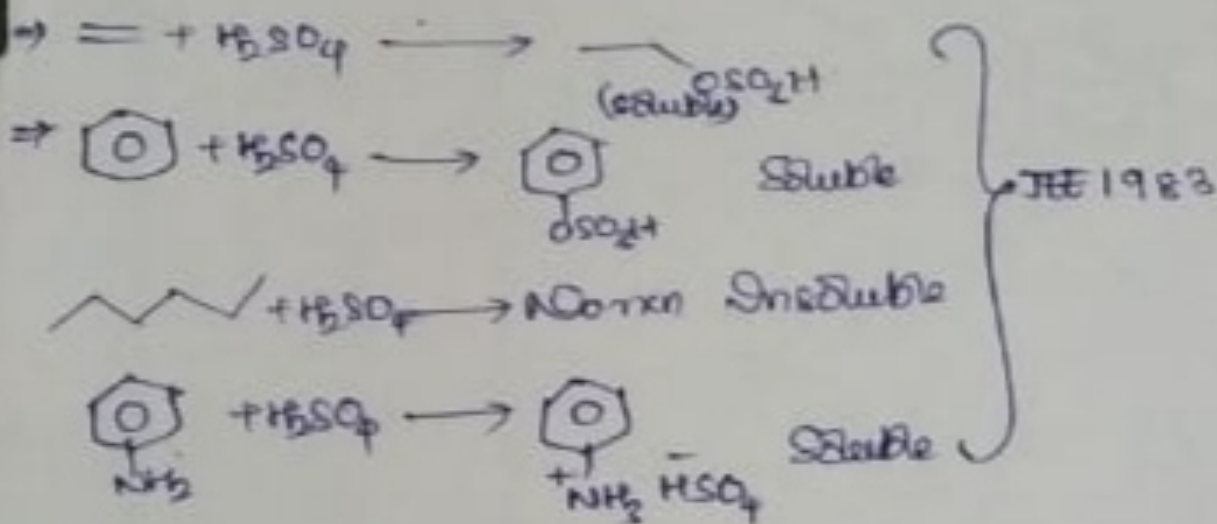 ⇒ = + H2SO4 → OSO2H
(soluble)
⇒ + H2SO4 → OSO2H Soluble
+ H2SO4 → No rxn Insoluble
NH2 + H2SO4 → +NH3 -HSO4 Soluble
JEE 1983